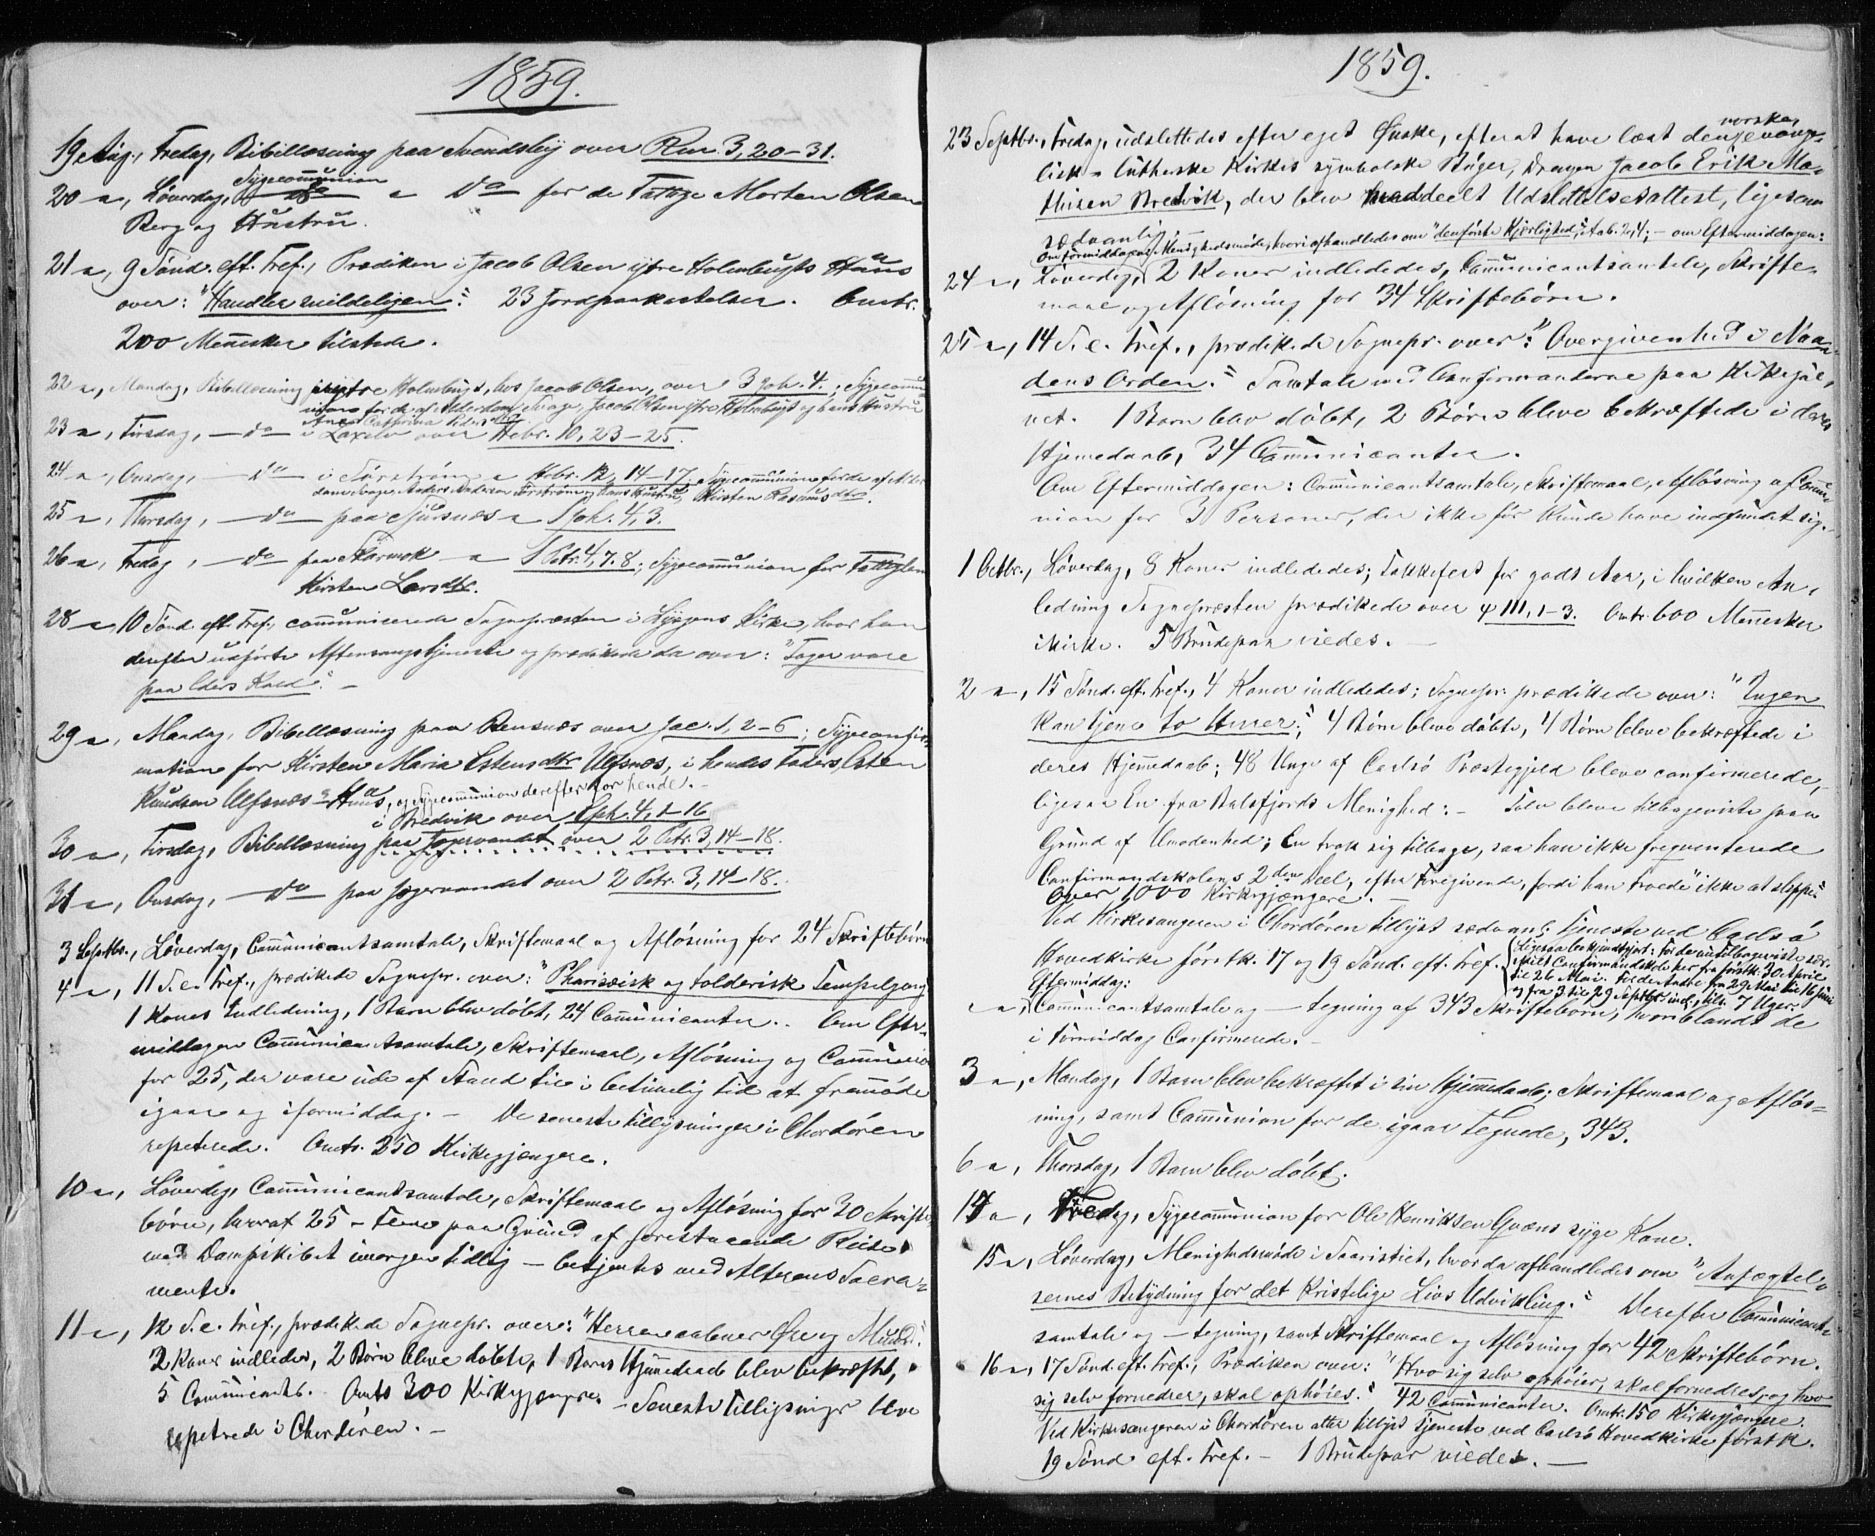 1859.
19 Aug., Fredag, Bibellæsning paa Svendsby over Rom. 3, 20-31.
20 " , Løverdag, Sygecommunion " Do for de Fattige Morten Olsen
Berg og Hustru.
21 " , 9 Sönd. eft. Tref., Prædiken i Jacob Olsen ytre Holmbugts Huus
over: "Handler snildeligen". 23 Jordpaakastelser. Omtr.
200 Mennesker tilstede.
22 " , Mandag, Bibellæsning i ytre Holmbugt, hos Jacob Olsen, over 3 Joh. 4.; Sygecommu-
nion for de af Alderdom Svage, Jacob Olsen ytre Holmbugt og hans Hustru
Anne Cathrina Pedersdtr.
23 " , Tirsdag, — do i Laxelv over Hebr. 10, 23-25.
24 " , Onsdag, — do i Sörströmen " Hebr. 12, 14-17, Sygecommunion for de af Alder-
dom Svage, Anders Andersen Sörströmen, Hans Hustru, Kirsten Rasmusdtr.
25 " , Thorsdag, — do paa Sjursnæs " 1 Joh. 4, 3.
26 " , Fredag, — do paa Skarmok — " 1 Petr. 4, 7.8; Sygecommunion for Fattiglem
Kirsten Larsdtr.
28 " , 10 Sönd. eft. Tref., communicerede Sognepræsten i Lyngens Kirke, hvor han
derefter udförte Aftensangstjeneste og prædikede da over: "Tager vare
paa Eders Kald". —
29 " , Mandag, Bibellæsning paa Reinsnæs over Jac. 1, 2-6; Sygeconfir-
mation for Kirsten Maria Estensdtr Ulfsnæs, i hendes Faders, Esten
Knudsen Ulfsnæs's Huus, og Sygecommunion derefter for hende. —
i Bredvik over Eph. 4, 1-16
30 " , Tirsdag, Bibellæsning paa Jægervandet over 2 Petr. 3, 14-18.
31 " , Onsdag, — Do paa Jægervandet over 2 Petr. 3, 14-18.
3 Septbr., Løverdag, Communicantsamtale, Skriftemaal og Aflösning for 24 Skriftebörn
4 " , 11 S. e. Tref., prædikede Sognepr. over: "Pharisæisk og tolderisk Tempelgang
1 Kones Indledning, 1 Barn blev döbt, 24 Communicanter. Om Efter-
middagen Communicantsamtale, Skriftemaal, Aflösning og Communion
for 25, der vare ude af Stand til i betimelig Tid at fremmöde
igaar og iformiddag. — De seneste Tillysninger i Chordören
repeterede. Omtr. 250 Kirkegjængere.
10 " , Löverdag, Communicantsamtale, Skriftemaal og Aflösning for 30 Skrifte-
börn, hvoraf 25 — Fem paa Grund af forestaaende Reise
med Dampskibet imorgen tidlig — betjentes med Alterens Sacra-
mente.
11 " , 12 S. e. Tref., prædikede Sognepr. over: "Herren aabner Öre og Mund".
2 Koner indledes, 2 Börn bleve döbte, 1 Barns Hjemmedaab blev bekræftet,
5 Communicanter. Omtr 300 Kirkegjængere. — Seneste Tillysninger bleve
repeterede i Chordören. —
1859.
23 Septbr., Fredag, udslettedes efter eget Önske, efterat have læst den norske, evange-
lisk-lutherske Kirkes symbolske Böger, Drengen Jacob Erik Ma-
thisen Bredvik, der blev meddeelt Udslettelsesattest, ligesom
sædvanlig. —
Om Formiddagen Menighedsmöde, hvori afhandledes om "den förste Kjærlighed", Aab. 2, 4; — om Eftermiddagen:
24 " , Løverdag, 2 Koner indlededes, Communicantsamtale, Skrifte-
maal og Aflösning for 34 Skriftebörn.
25 " , 14 S. e. Tref., prædikede Sognepr. over: "Overgivenhed i Naa-
dens Orden." Samtale med Confirmanterne paa Kirkegul-
vet. 1 Barn blev döbt, 2 Börn bleve bekræftede i deres
Hjemedaab, 34 Communicanter.
Om Eftermiddagen: Communicantsamtale, Skriftemaal, Aflösning og Commu-
nion for 3 Personer, der ikke för kunde have indfundet sig.
1 Octbr., Løverdag, 8 Koner indlededes; Takkefest for godt Aar, i hvilken An-
ledning Sognepræsten prædikede over ψ 111, 1-3. Omtr. 600 Mennesker
i Kirke. 5 Brudepar viedes. —
2 " , 15 Sönd. eft. Tref., 4 Koner indlededes; Sognepr. prædikede over: "Ingen
kan tjene to Herrer;" 4 Börn bleve döbte, 4 Börn bleve bekræftede i
deres Hjemmedaab; 48 Unge af Carlsö Præstegjeld bleve confirmerede,
ligesaa En fra Balsfjords Menighed: — Tolv bleve tilbageviste paa
Grund af Umodenhed; En trak sig tilbage, saa han ikke frequenterede
Confirmandskolens 2den Deel, efter Foregivende, fordi han troede "ikke at slippe".
Over 1000 Kirkegjængere. —
Ved Kirkesangeren i Chordören tillyst sædvanl. Tjeneste ved Carlsö
Hovedkirke förstk. 17 og 19 Sönd. eft. Tref. Ligesaa bekjendtgjort: For de nu tilbageviste sær-
skilt Confirmandskole her fra förstk. 30 April
til 26 Mai. For de Andre fra 29 Mai til 16 Juni
og fra 3 til 29 Septbr. incl., tils. 7 Uger.
Eftermiddag:
" " , Communicantsamtale og — tegning af 343 Skriftebörn, hvoriblandt de
i Formiddag Confirmerede. —
3 " , Mandag, 1 Barn blev bekræftet i sin Hjemmedaab; Skriftemaal og Aflös-
ning, samt Communion for de igaar Tegnede, 343.
6 " , Thorsdag, 1 Barn blev döbt.
14 " , Fredag, Sygecommunion for Ole Henriksen Qvæns syge Kone.
15 " , Löverdag, Menighedsmöde i Sacristiet, hvor da afhandledes om "Anfægtel-
sernes Betydning for det kristelige Livs Udvikling." Derefter Communicant-
samtale og — tegning, samt Skriftemaal og Aflösning for 42 Skriftebörn.
16 " , 17 Sönd. eft. Tref., Prædiken over: "Hvo sig selv ophöier, skal fornedres, og hvo
sig selv fornedrer, skal ophöies." 42 Communicanter. Omtr. 150 Kirkegjængere.
Ved Kirkesangeren i Chordören atter tillyst Tjeneste ved Carlsö Hovedkirke förstk.
19 Sönd. eft. Tref. — 1 Brudepar viedes. —